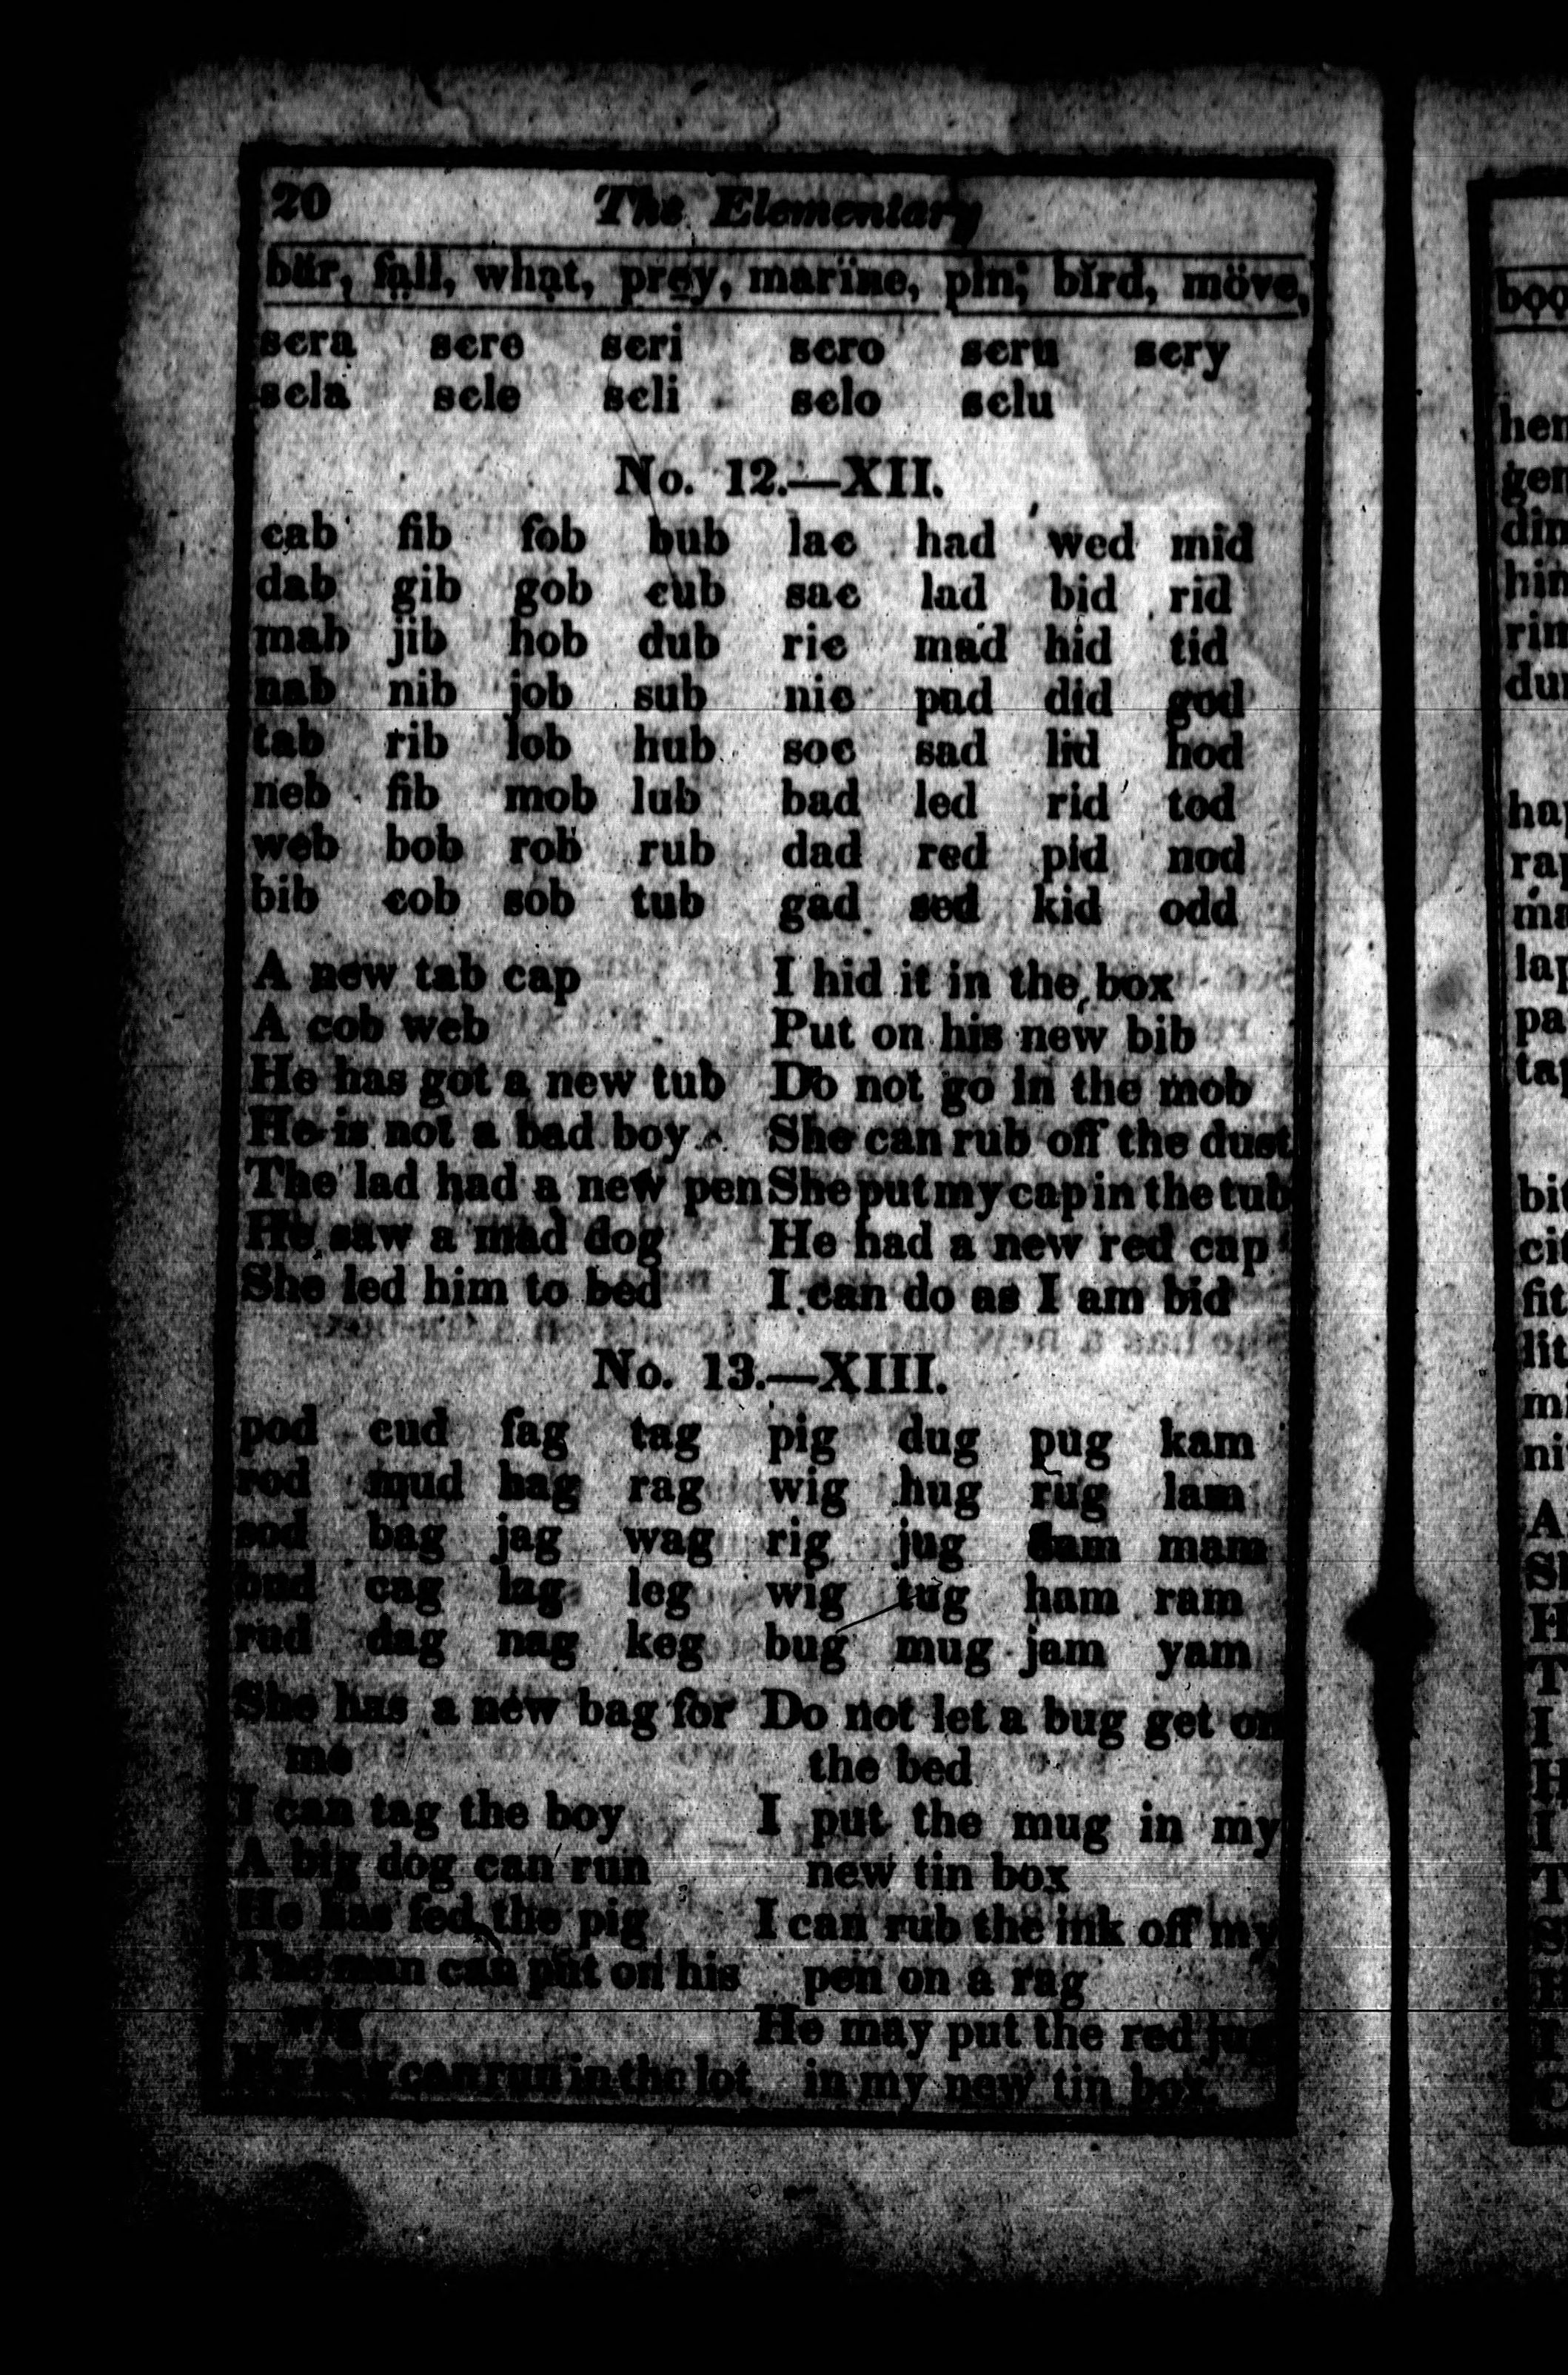 20 The Elementary
bär, fạll, whạt, prẹy, marïne, pin, bïrd, möve,
sera sere seri sero seru sery
scla scle scli sclo sclu
No. 12.—XII.
cab fib fob bub lac had wed mid
dab gib gob cub sac lad bid rid
mab jib hob dub ric mad hid tid
nab nib job sub nic pad did god
tab rib lob hub soc sad lid hod
neb fib mob lub bad led rid tod
web bob rob rub dad red pid nod
bib cob sob tub gad sed kid odd
A new tab cap
A cob web
He has got a new tub
He is not a bad boy
The lad had a new pen
He saw a mad dog
She led him to bed
I hid it in the box
Put on his new bib
Do not go in the mob
She can rub off the dust
She put my cap in the tub
He had a new red cap
I can do as I am bid
No. 13.—XIII.
pod cud fag tag pig dug pug kam
rod mud hag rag wig hug rug lam
sod bag jag wag rig jug mam
bud cag lag leg wig tug ham ram
rud dag nag keg bug mug jam yam
She has a new bag for
me
I can tag the boy
A big dog can run
He has fed the pig
The man can put on his
wig
can run in the lot
Do not let a bug get on
the bed
I put the mug in my
new tin box
I can rub the ink off my
pen on a rag
He may put the red jug
in my new tin box.